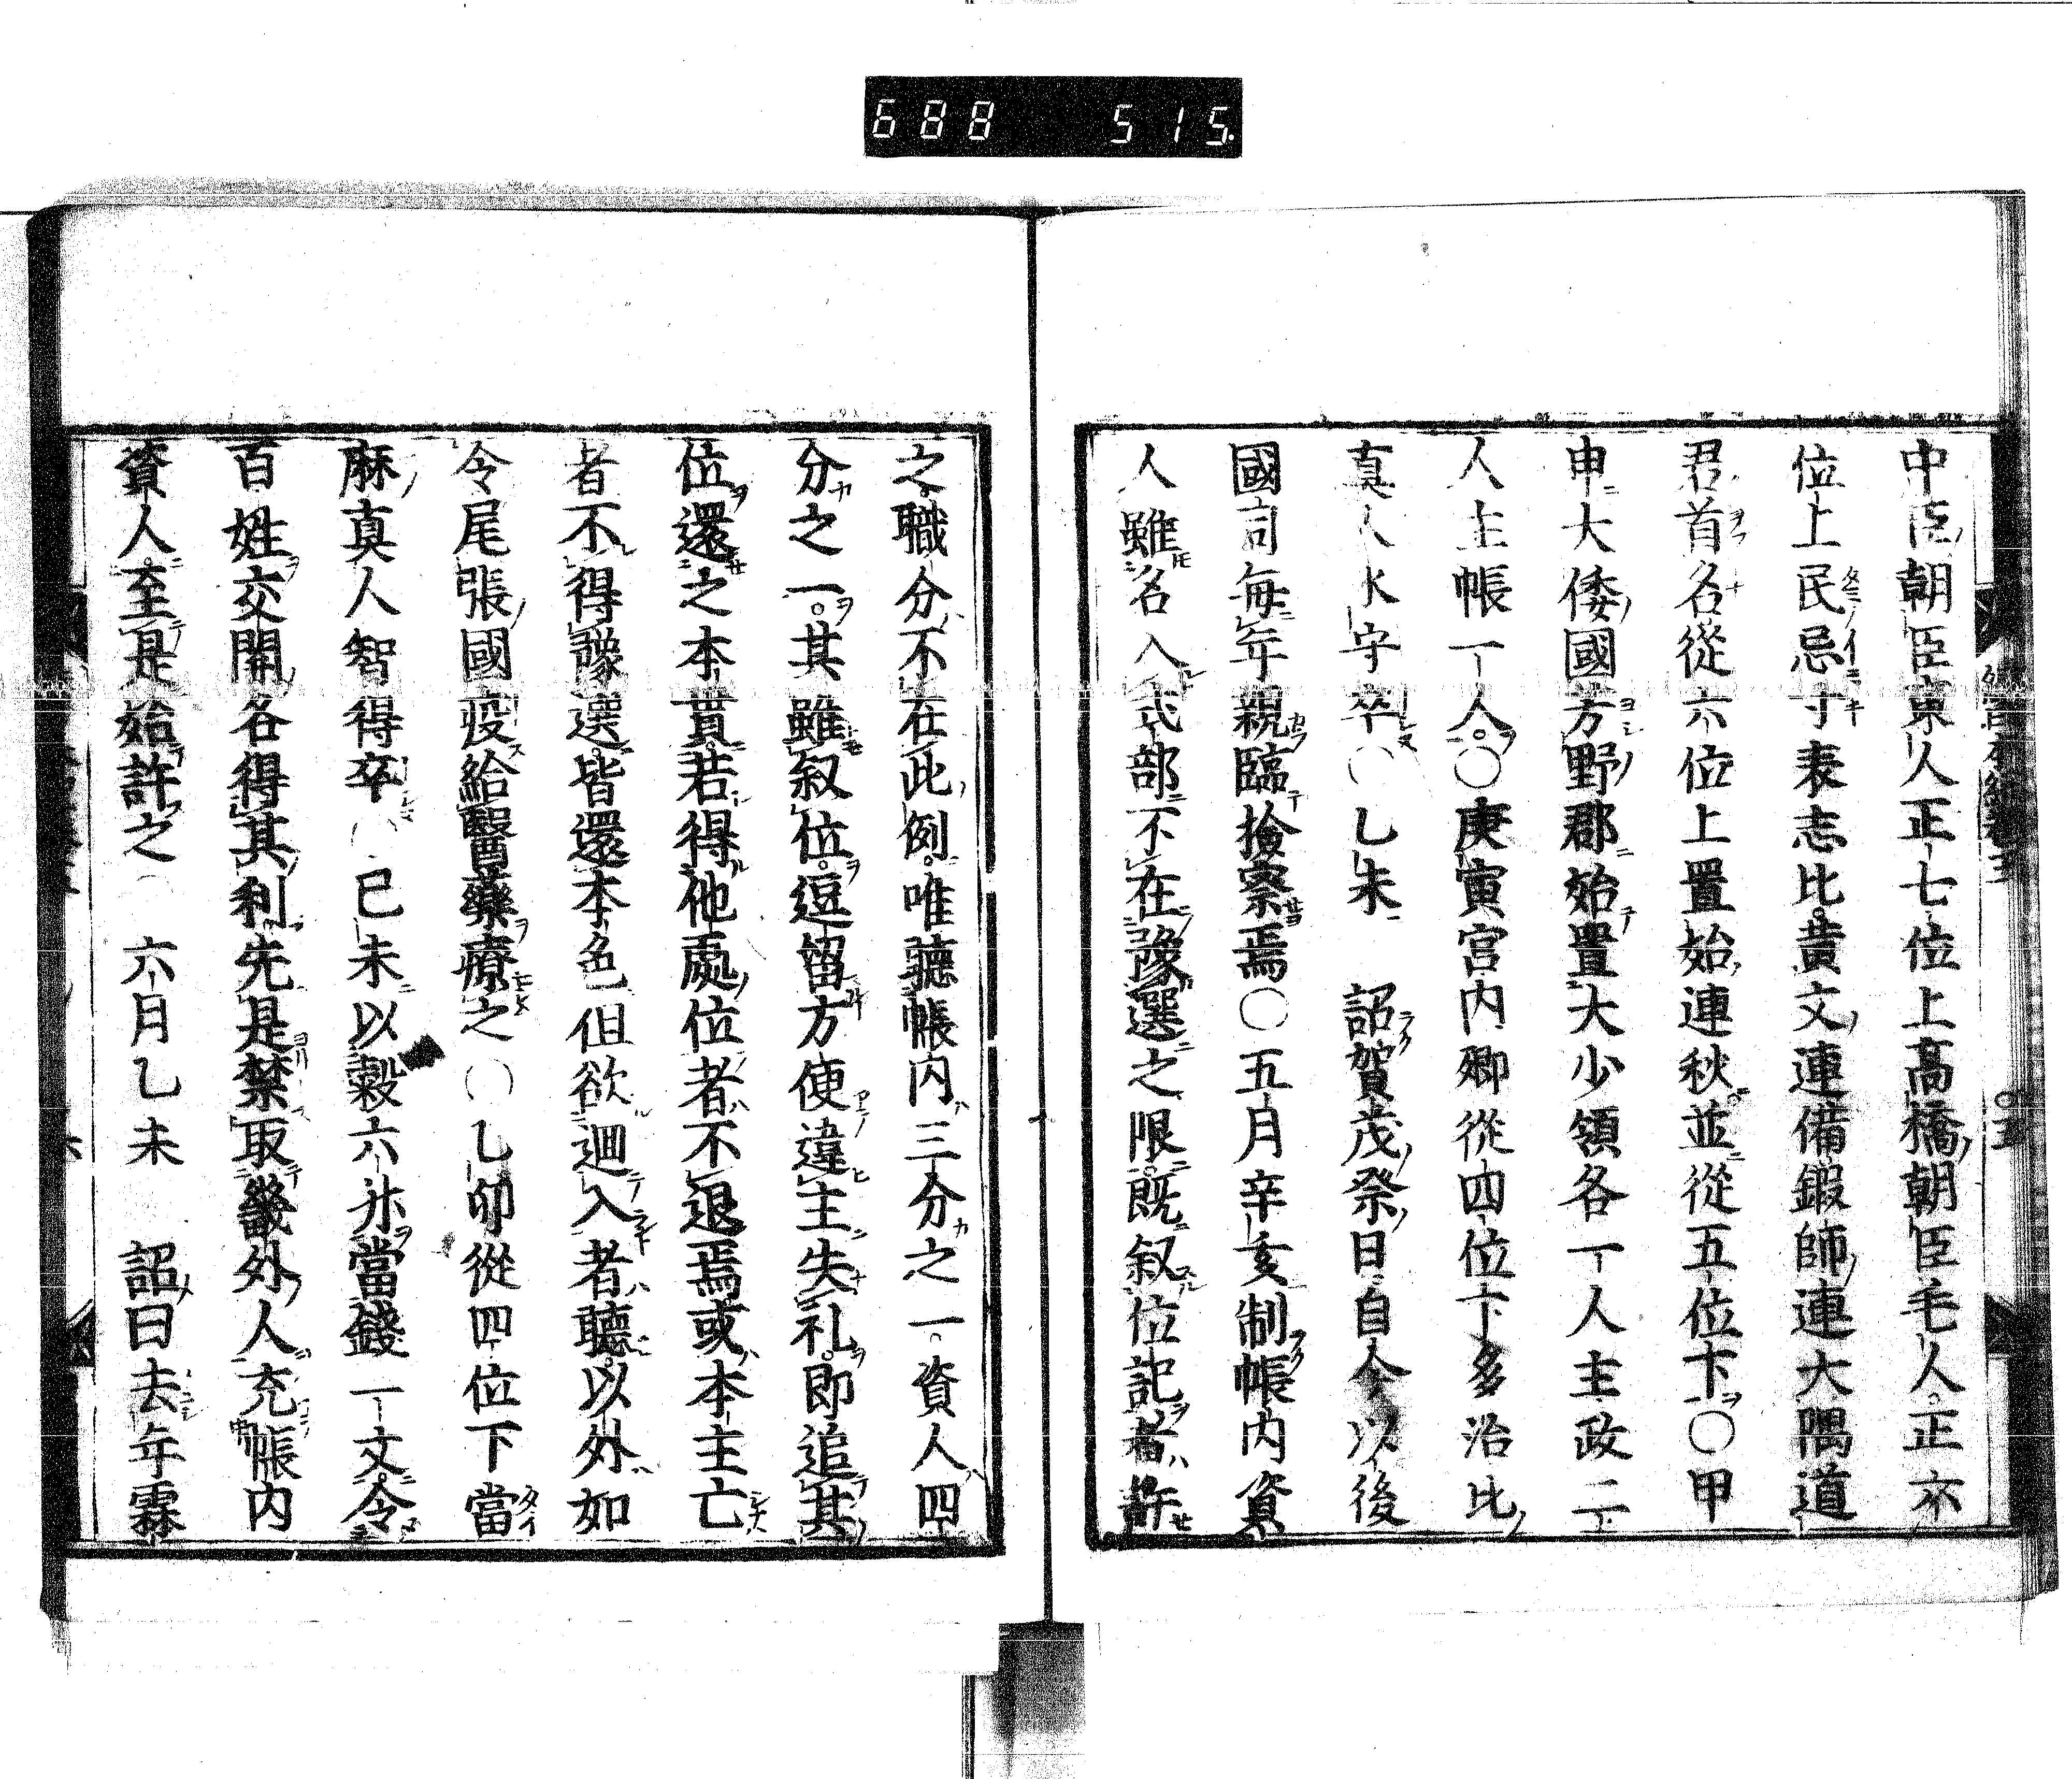 688 515.
中臣朝臣東人正七位上高橋朝臣毛人。正六
位上民忌寸袁志比。黄文連備鍛師連大隅道
君首名從六位上置始連秋並從五位下〇甲
申大倭國芳野郡始置大少領各一人主政二
人主帳一人。〇庚寅宮内卿從四位下多治比
真人水守卒〇乙未 詔賀茂祭日自今以後
國司每年親臨撿察焉〇五月辛亥制帳内資
人雖名入式部不在豫選之限。既叙位記者。許
之。職分不在此例。唯聽帳内三分之一。資人四
分之一。其雖叙位。逗留方便違主失礼。即追其
位還之本貫。若得他處位者不退焉或本主亡
者不得豫選。皆還本色但欲廻入者聽。以外如
令尾張國疫給醫藥療之〇乙卯從四位下當
麻真人智得卒〇己未以穀六升當錢一文。令
百姓交開各得其利先是禁取畿外人充帳内
資人。至是始許之〇六月乙未 詔曰去年霖